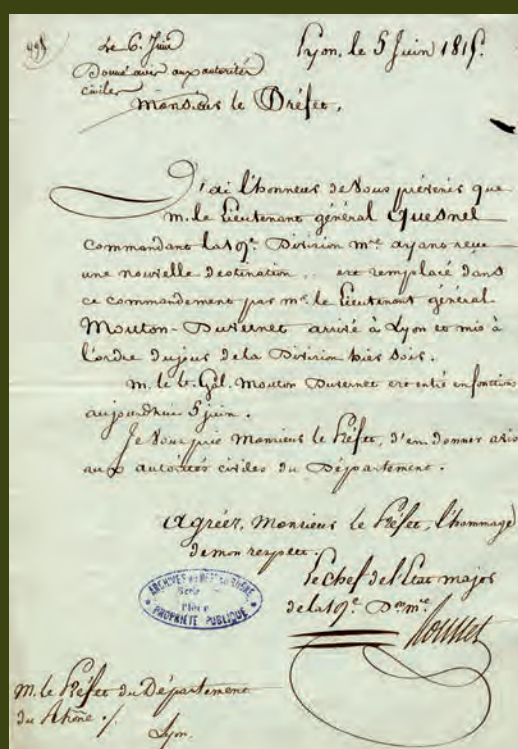 998
Le 6. Juin
Donné avis aux autorités
civiles
Lyon, le 5 Juin 1815.
Monsieur le Préfet,
J'ai l'honneur de Vous prévenir que
m. le Lieutenant général Quesnel
commandant la 19e. Division mre. ayant reçu
une nouvelle destination .. est remplacé dans
ce commandement par mr. le Lieutenant général
Mouton-Duvernet arrivé à Lyon et mis à
l'ordre du jour de la Division hier soir.
m. le Lt. Gal. Mouton Duvernet est entré en fonctions
aujourdhui 5 juin.
Je Vous prie Monsieur le Préfet, d'en donner avis
aux autorités civiles du Département.
Agréez, Monsieur le Préfet, l'hommage
de mon respect.
Le chef de l'Etat major
de la 19e. Don. mre.
ARCHIVES DU DEPT DU RHONE
Série
Pièce
PROPRIÉTÉ PUBLIQUE
m. le Préfet du Département
du Rhône ./.
Lyon.